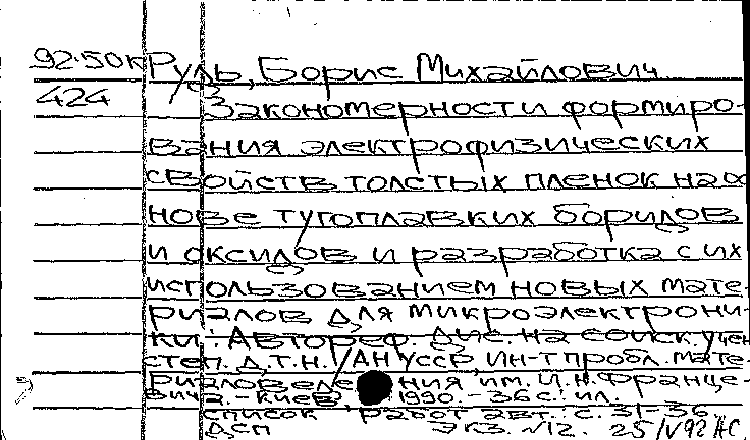 92-50К Руль, Борис Михайлович
424 Закономерности формиро-
вания электрофизических
свойств толстых пленок на ос
нове тугоплавких боридов
и оксидов и разработка с их
использованием новых мате-
риалов для микроэлектрони-
ки: Автореф. дис. на соиск. учен
степ. д.т.н. / АН УССР, ин-т пробл. мате-
риаловедения им. И.Н. Францe-
вича. - Киев, 1990. - 36 с.: ил.
список работ авт.: с. 31-36.
ДСП Экз. №12. 25/IV92 АС